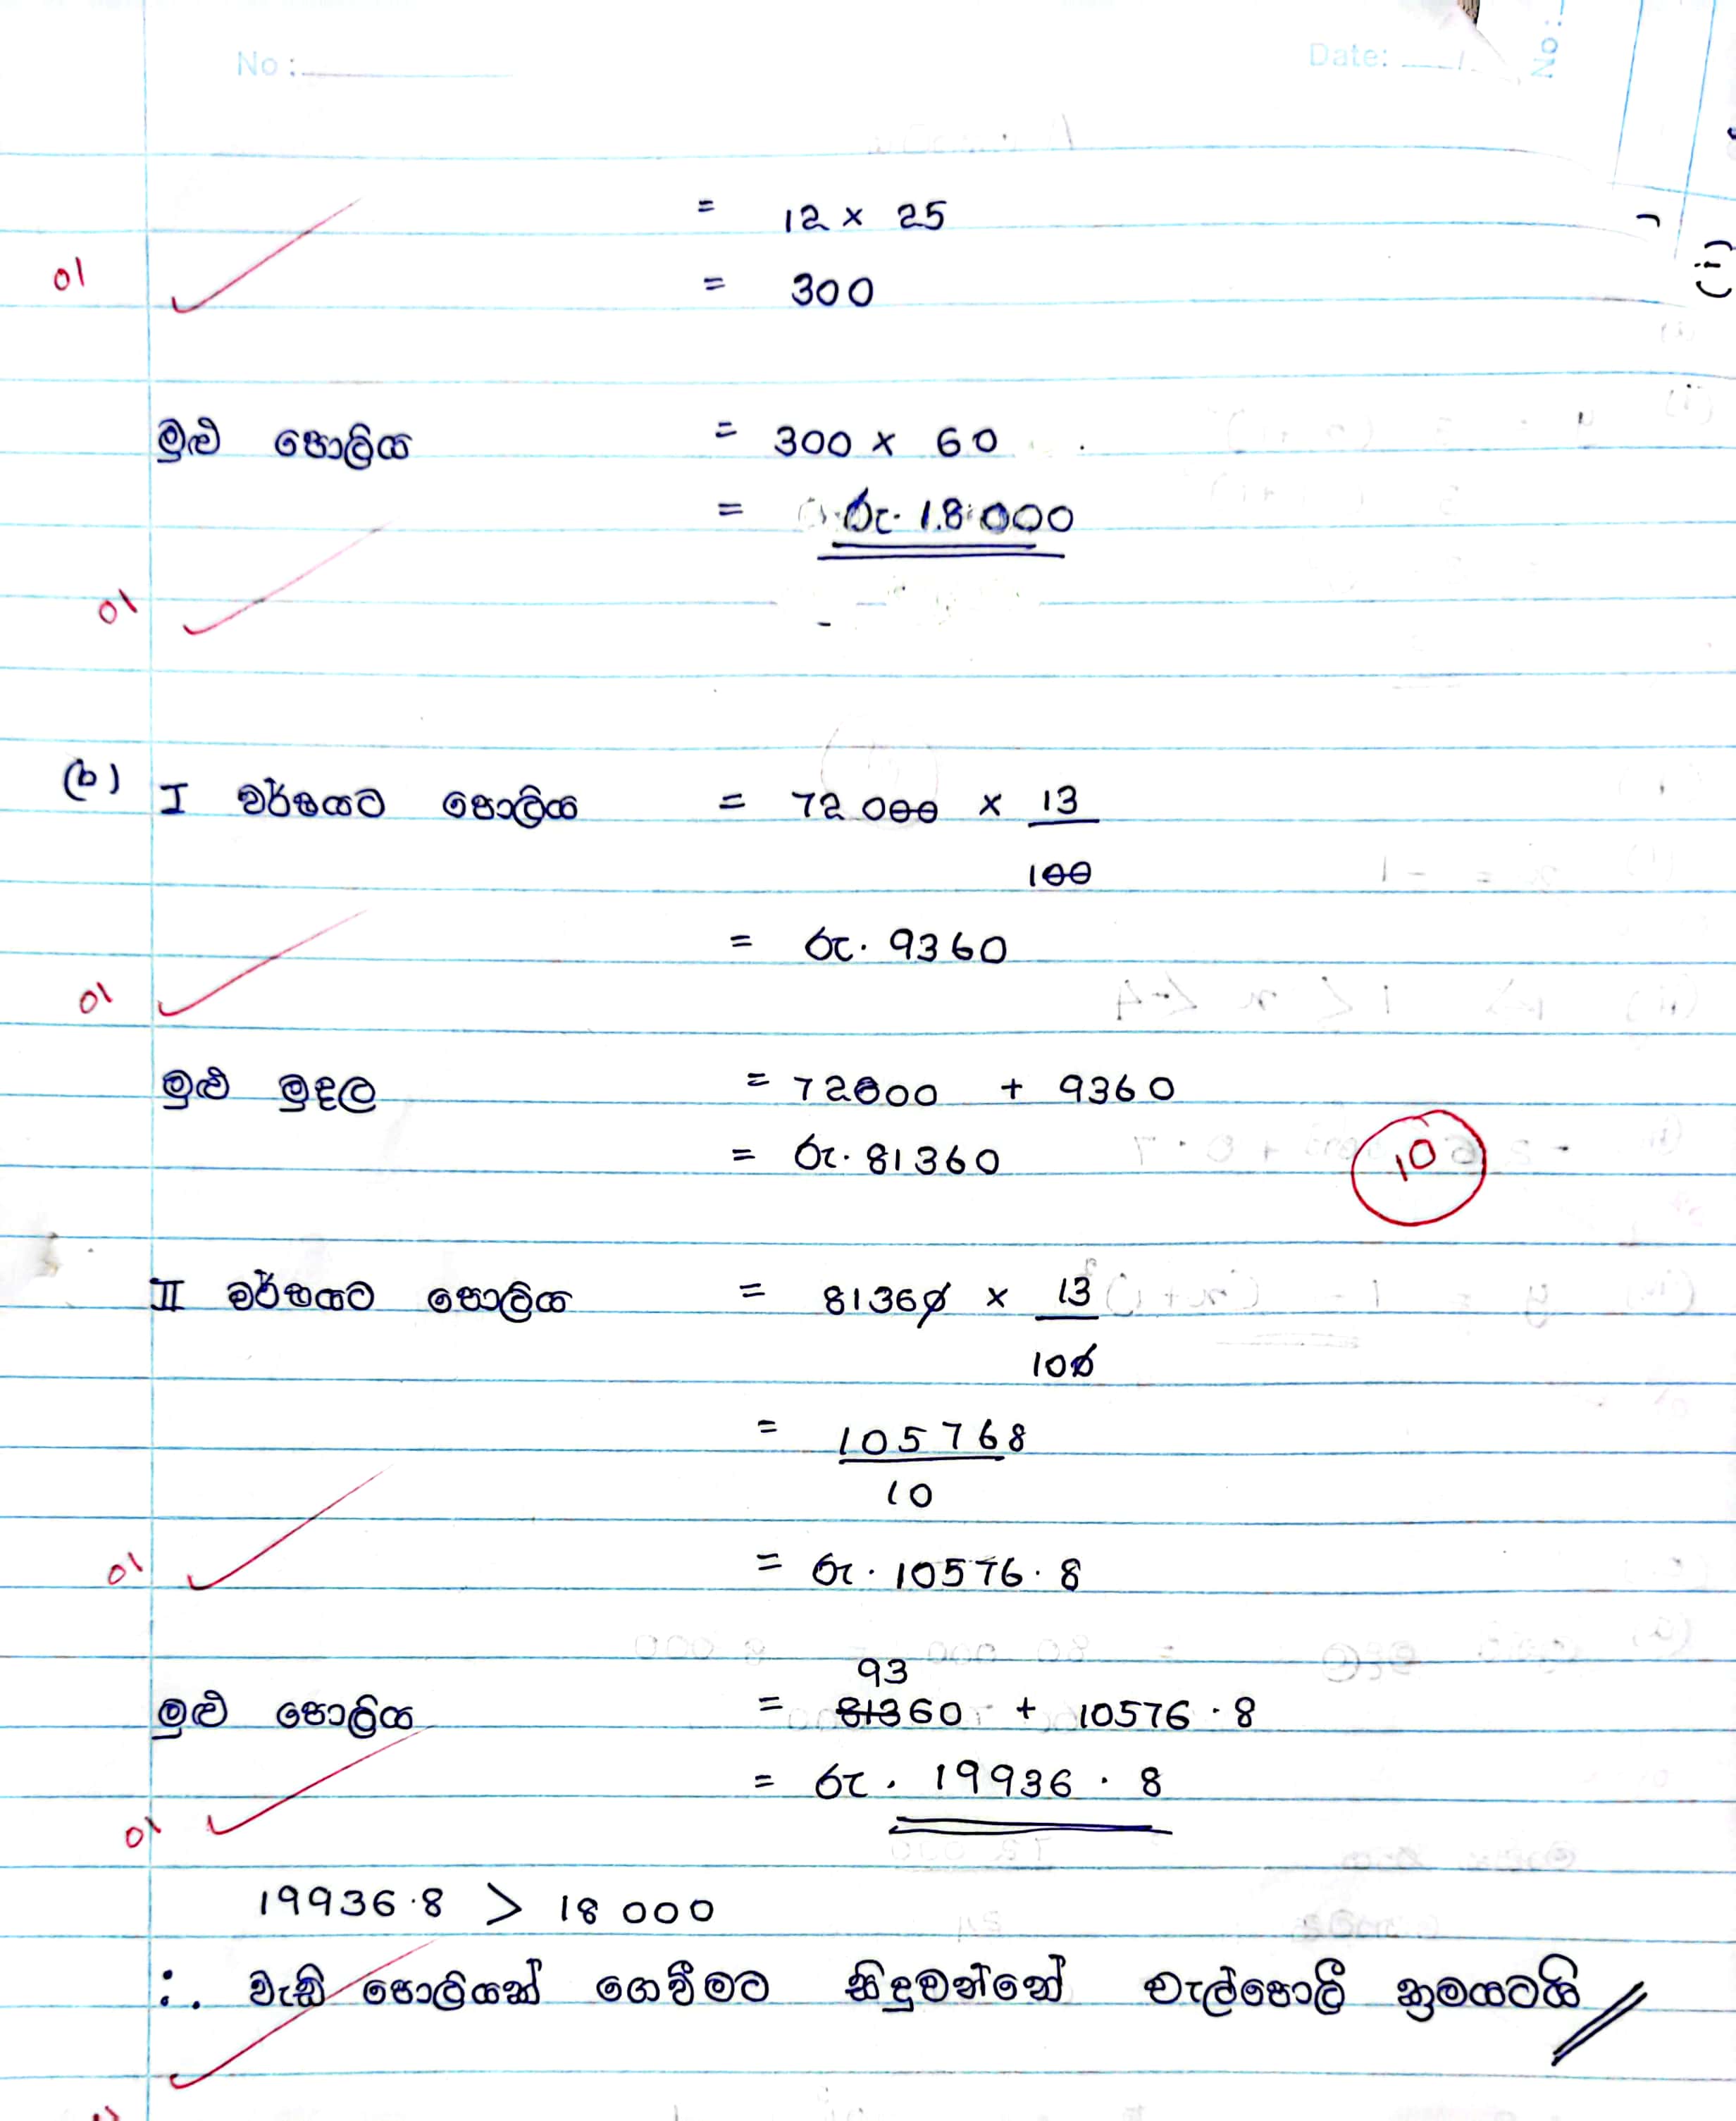 No :
Date:
No :
= 12 × 25
01
= 300
(ii)
මුළු පොලිය = 300 × 60
= රු. 18 000
01
(b) I වර්ෂයට පොලිය = 72 000 × 13
100
= රු. 9360
01
මුළු මුදල = 72000 + 9360
= රු. 81360
10
II වර්ෂයට පොලිය = 81360 × 13
100
= 105768
10
01
= රු. 10576.8
93
මුළු පොලිය = 81360 + 10576.8
= රු. 19936.8
01
19936.8 > 18 000
∴ වැඩි පොලියක් ගෙවීමට සිදුවන්නේ වැල්පොලී ක්‍රමයටයි